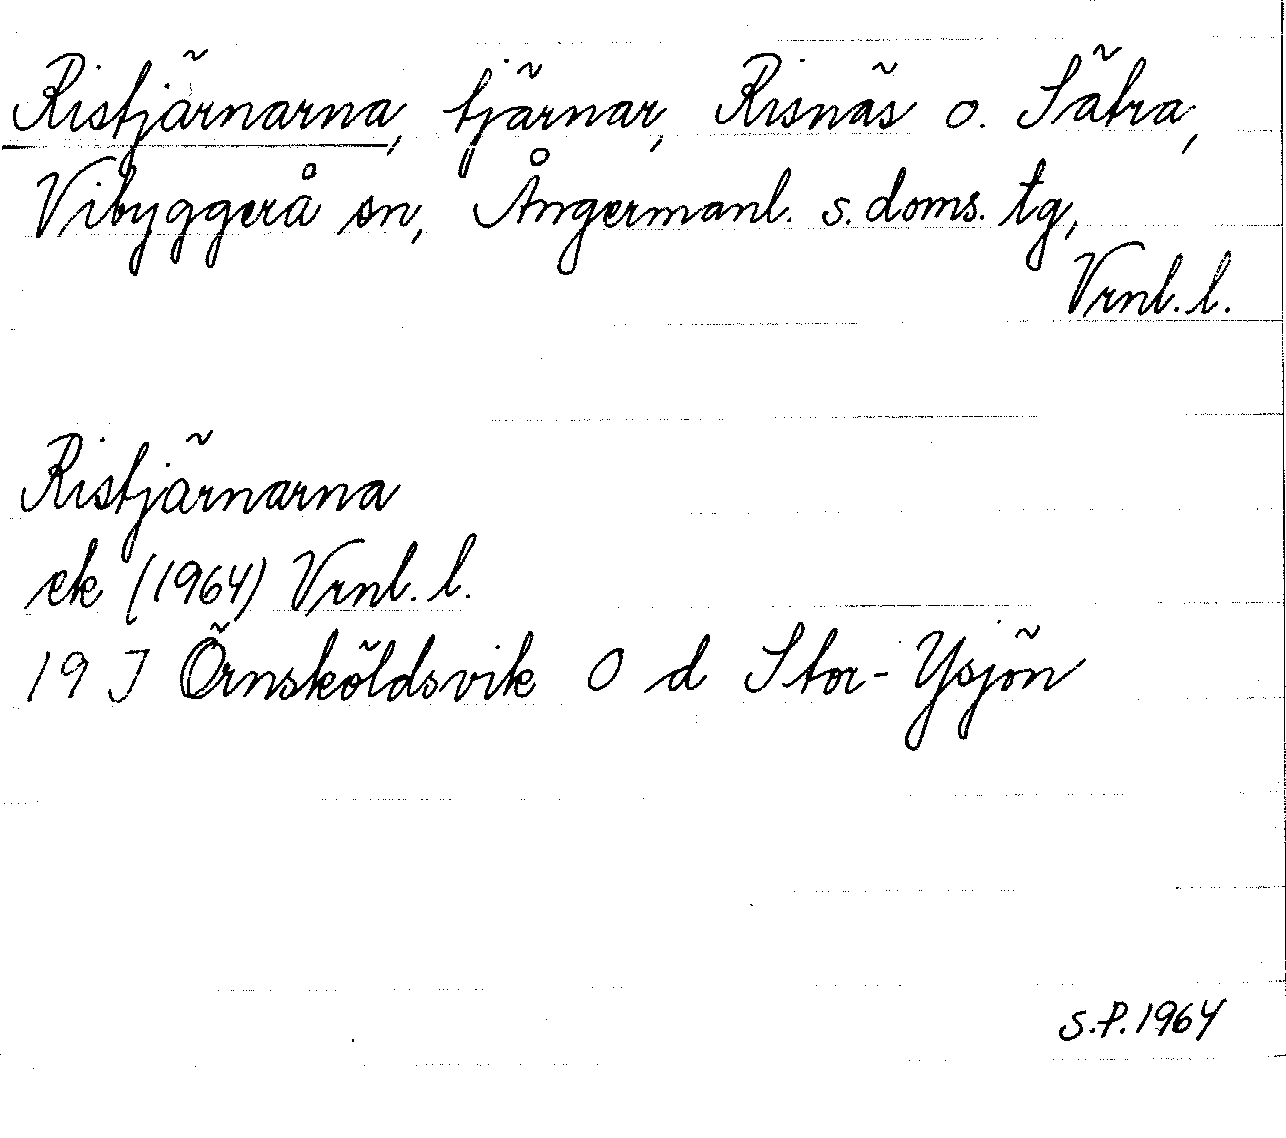 Ristjärnarna, tjärnar, Risnäs o. Sätra,
Vibyggerå sn, Ångermanl. s. doms. tg,
Vrnl. l.
Ristjärnarna
ek (1964) Vrnl. l.
19 J Örnsköldsvik O d Stor-Ysjön
S.P. 1964